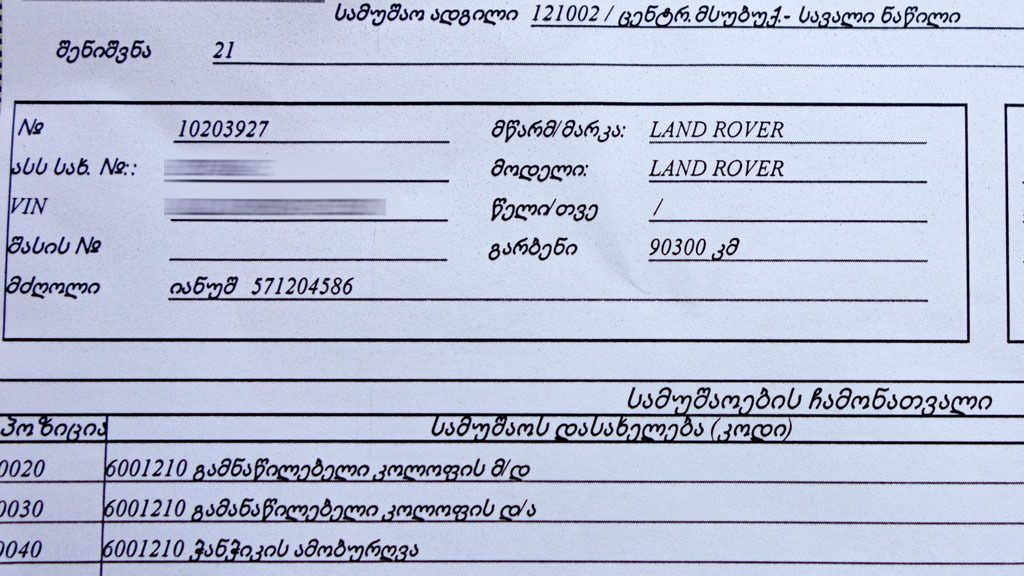 სამუშაო ადგილი 121002 / ცენტრ.მსუბუქ.- სავალი ნაწილი
შენიშვნა 21
№ 10203927 მწარმ/მარკა: LAND ROVER
ასს სახ. №:: მოდელი: LAND ROVER
VIN წელი/თვე /
შასის № გარბენი 90300 კმ
მძღოლი იანუშ 571204586
სამუშაოების ჩამონათვალი
პოზიცია სამუშაოს დასახელება (კოდი)
0020 6001210 გამნაწილებელი კოლოფის მ/დ
0030 6001210 გამანაწილებელი კოლოფის დ/ა
0040 6001210 ჭანჭიკის ამობურღვა